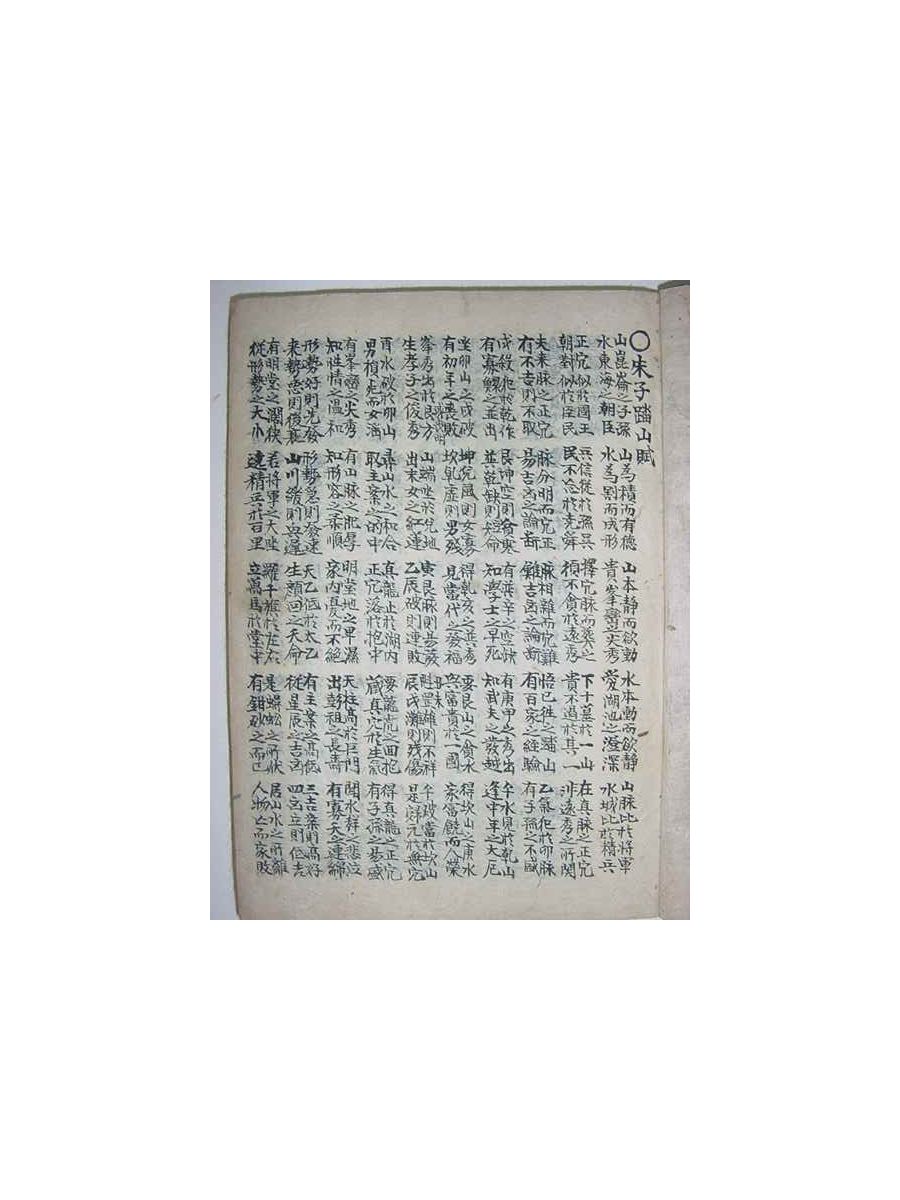 ○朱子踏山賦
山崑崙之子孫 山為積而有德 山本静而欲動 水本動而欲静 山脉比於將軍
水東海之朝臣 水為割而成形 貴峯巒之尖秀 愛湖池之澄深 水城比於精兵
正穴似於國王 兵信從於孫吳 擇穴脉而葬之 下十墓於一山 在真脉之正穴
朝對似於臣民 民不忘於堯舜 須不貪於遠秀 貴不過於其一 非遠秀之所関
夫來脉之正穴 脉分明而穴正 脉相雜而穴雜 悟已徃之踏山 乙氣犯於卯脉
有不吉則不取 易吉凶之論斷 難吉凶之論斷 有百家之經驗 有子孫之不盛
戌殺犯於乾作 艮坤空則貪寒 有巽辛之空缺 有庚甲之秀出 午水見於乾山
有寡鰥之並出 並乾缺則短命 知學士之早死 知武夫之發 逢中年之大厄
坐卯山之戌破 坤兌風則女寡 得乾亥之並秀 要艮山之貪水 得坎山之庚水
有初年之喪敗 坎乾虛則男殘 見當代之發福 與富貴於一國 家富饒而人榮
峯秀出於艮方 山端坐於兌地 寅艮脉則易發 丑未 魁罡雄則不祥 午破當於坎山
生孝子之俊秀 出末女之紅蓮 乙辰破則連敗 辰戌灘則殘傷 是穴於無穴
酉水破於卯山 尋山水之和合 真龍止於湖内 要龍虎之回抱 得真龍之正穴
男損而女淫 取主案之的中 正穴落於抱中 藏真穴於生氣 有子孫之昜盛
有峯巒之尖秀 有山脉之肥厚 明堂地之卑濕 天柱高於巨門 聞水聲之悲泣
知性情之温和 知形容之柔順 家内憂而不絕 出彭祖之長壽 有寡夭之連綿
形勢好則先發 形勢急則發速 天乙低於太乙 有主案之高低 三吉案則高好
來勢惡則後衰 山川緩則興遲 生顏回之夭命 從星辰之吉凶 四凶立則低吉
有明堂之濶狹 若將軍之大坐 羅千班於左右 是蜈蚣之所伏 居山水之所離
從形勢之大小 遠精兵於百里 立萬馬於堂中 有鉗砂之而已 人物亡而家敗